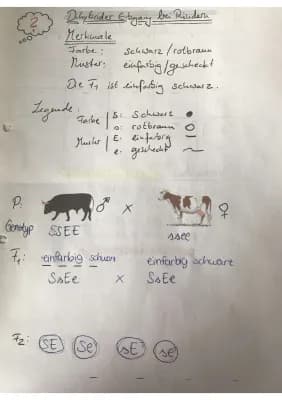 2
Dihybrider Erbgang bei Rindern
Merkmale
Farbe: schwarz/rotbraun
Muster: einfarbig/gescheckt
Die F1 ist einfarbig schwarz.
Legende:
Farbe | S: schwarz
s: rotbraun O
Muster | E: einfarbig –
e: gescheckt ~
P: ♂ x ♀
Genotyp SSEE ssee
F1: einfarbig schwarz einfarbig schwarz
SsEe x SsEe
F2: SE Se sE se